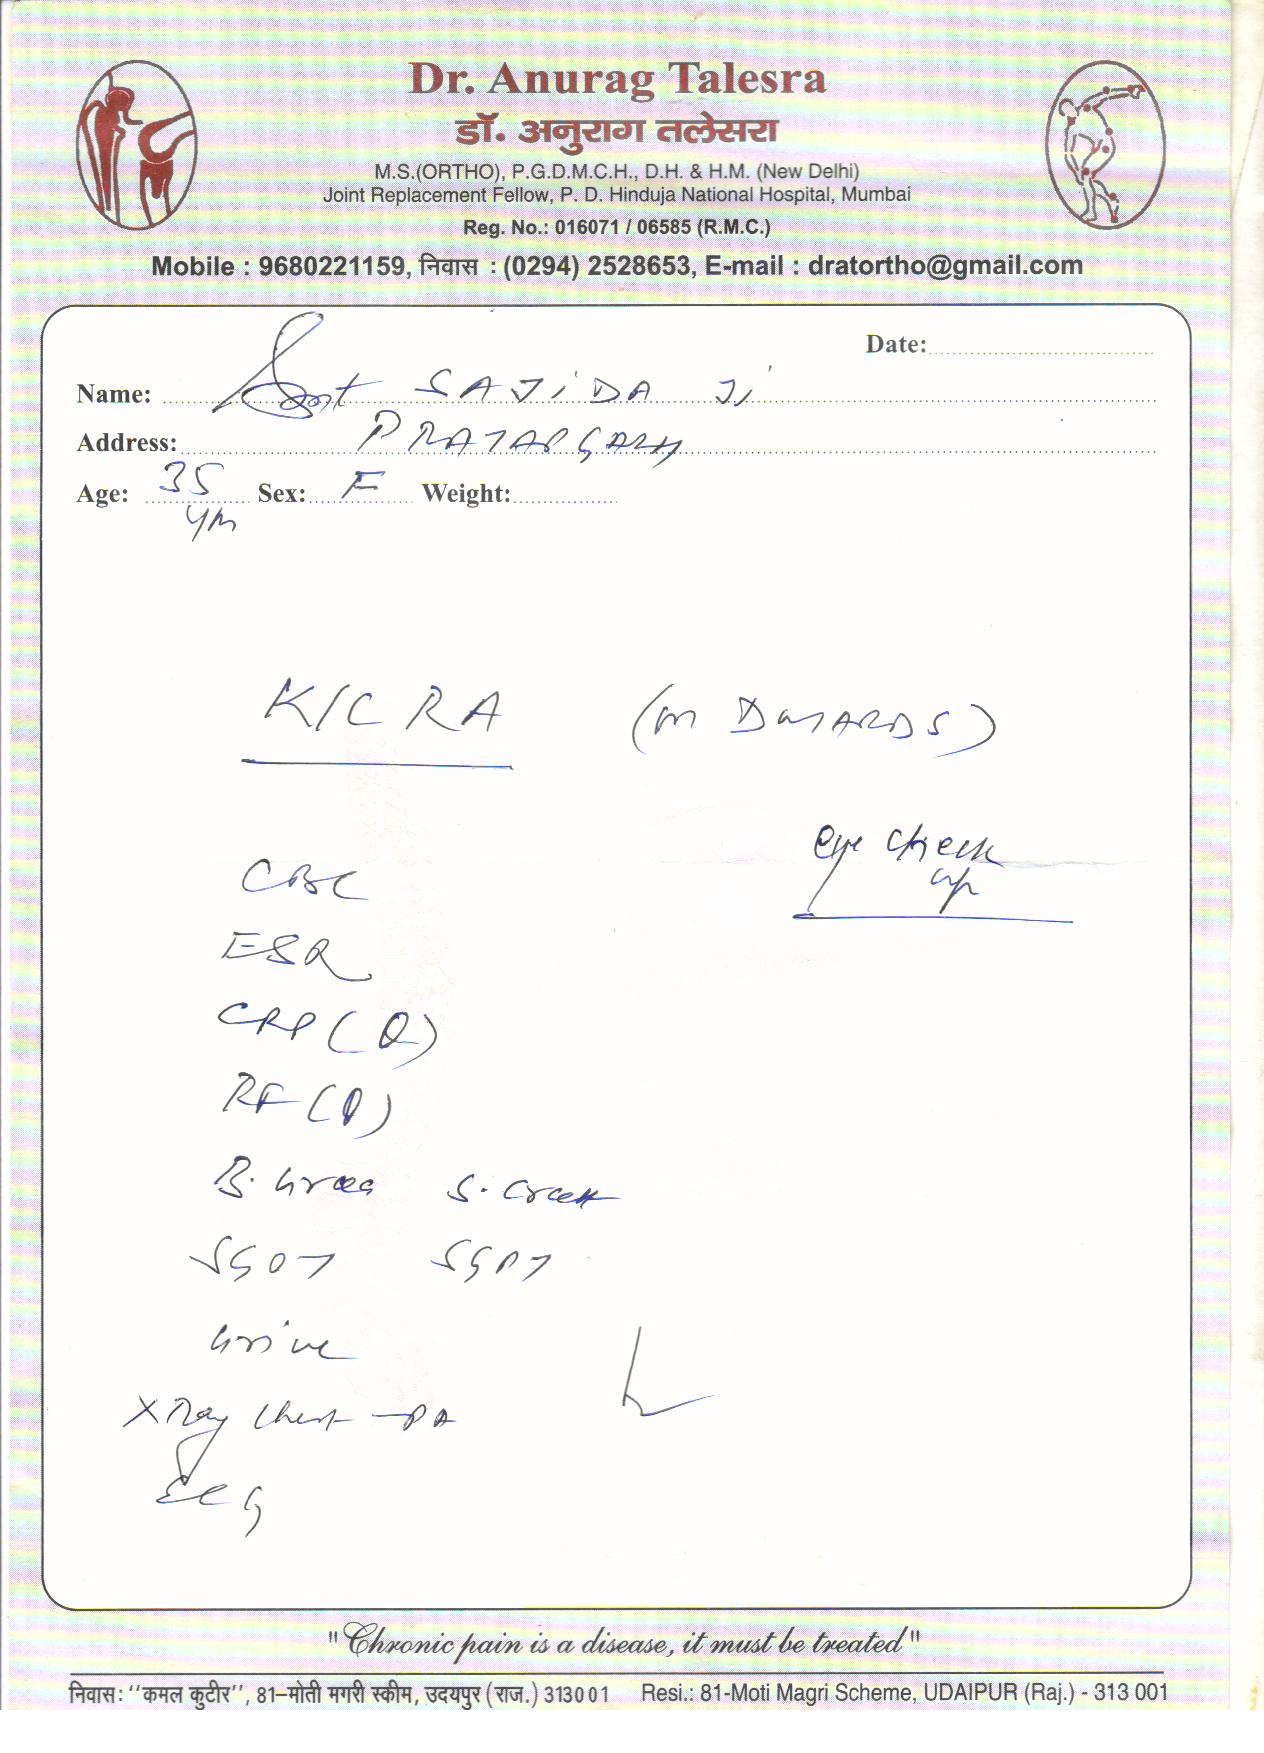 Dr. Anurag Talesra
डॉ. अनुराग तलेसरा
M.S.(ORTHO), P.G.D.M.C.H., D.H. & H.M. (New Delhi)
Joint Replacement Fellow, P. D. Hinduja National Hospital, Mumbai
Reg. No.: 016071 / 06585 (R.M.C.)
Mobile : 9680221159, निवास : (0294) 2528653, E-mail : dratortho@gmail.com
Date:
Name: Smt SAJiDA Ji
Address: PRATAPGARH
Age: 35 Sex: F Weight:
K/C RA (on DMARDS)
eye check
up
CBC
ESR
CRP (Q)
RF (Q)
B. Urea S. Creat
SGOT SGPT
Urine
X Ray Chest - PA
ECG
"Chronic pain is a disease, it must be treated"
निवास: ‘‘कमल कुटीर’’, 81–मोती मगरी स्कीम, उदयपुर (राज.) 313001 Resi.: 81-Moti Magri Scheme, UDAIPUR (Raj.) - 313 001